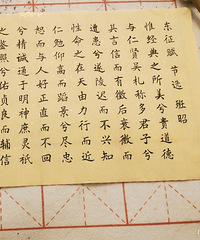 东征赋 节选 班昭
惟经典之所美兮贵道德
与仁贤吴札称多君子兮
其言信而有徵后衰微而
遭患兮遂陵迟而不兴知
性命之在天由力行而近
仁勉仰高而蹈景兮尽忠
恕而与人好正直而不回
兮精诚通于明神庶灵祇
之鉴照兮佑贞良而辅信